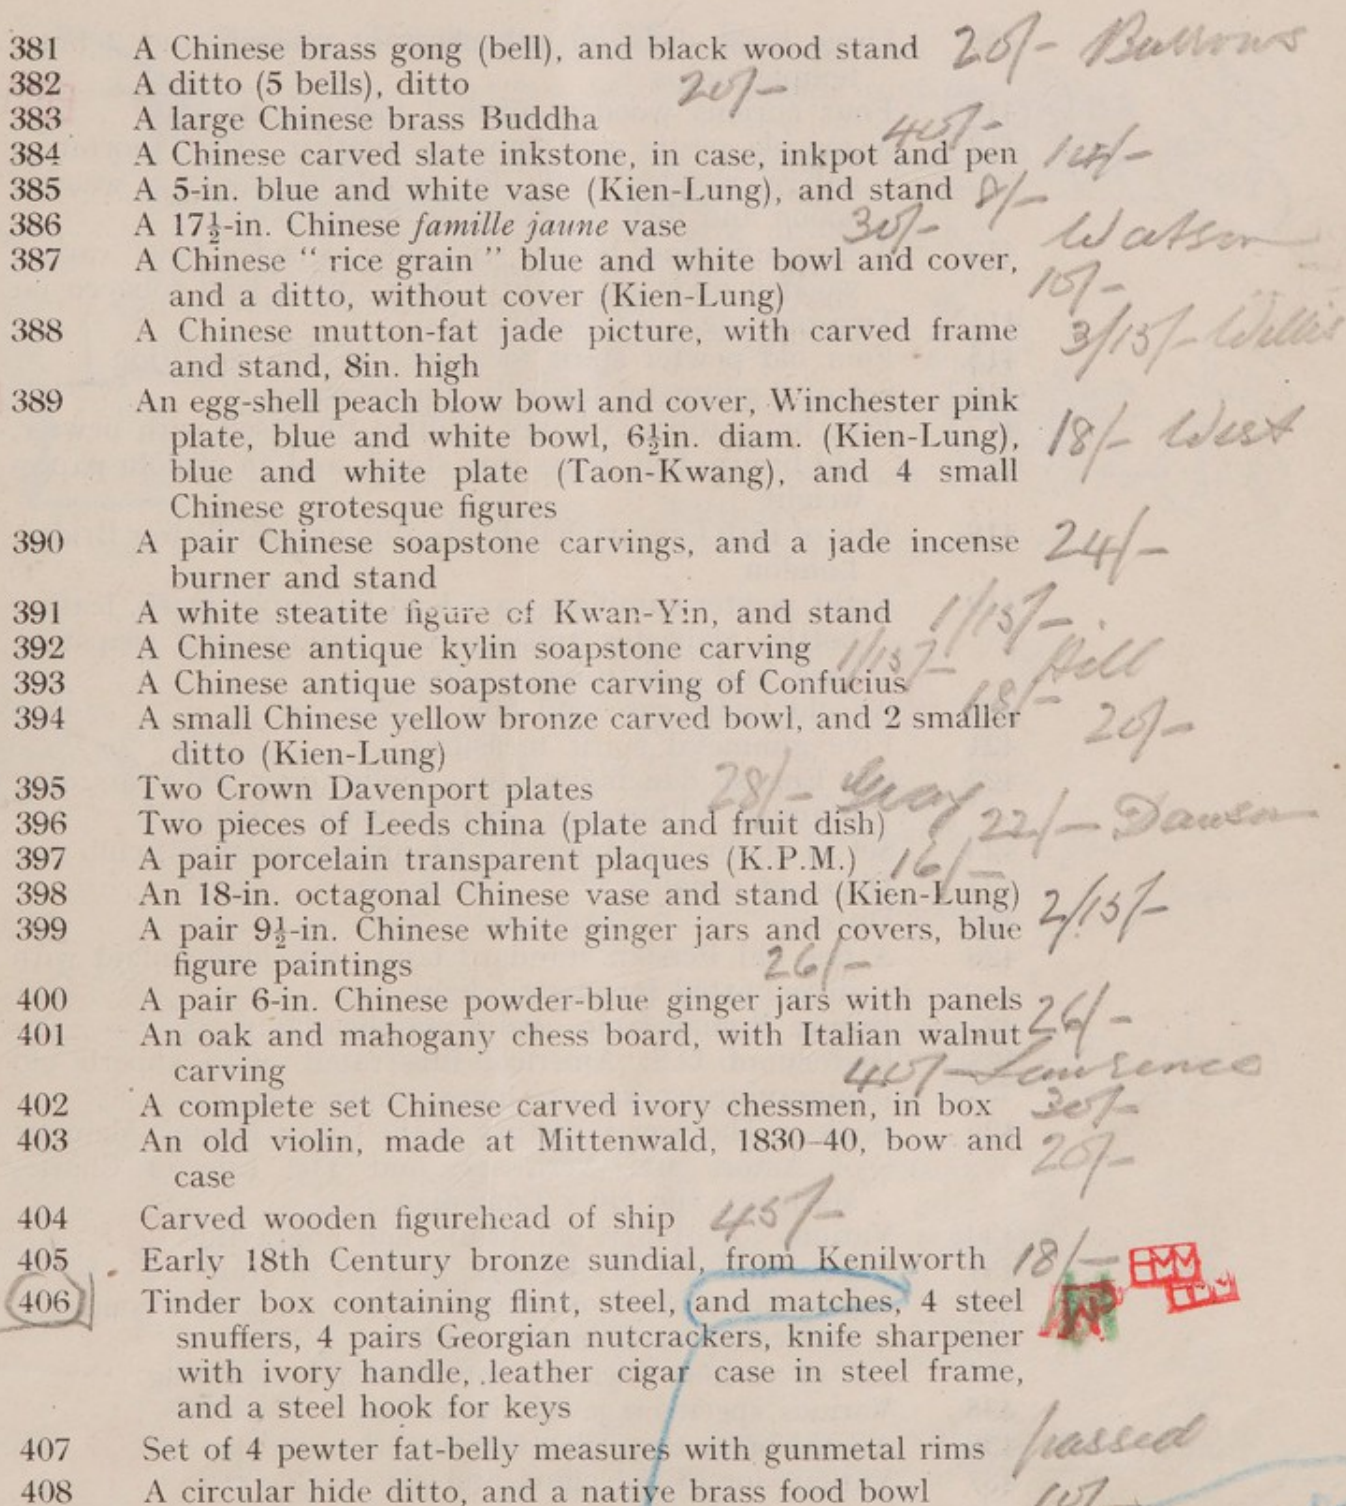 381 A Chinese brass gong (bell), and black wood stand 20/- Burrows
382 A ditto (5 bells), ditto 20/-
383 A large Chinese brass Buddha 40/-
384 A Chinese carved slate inkstone, in case, inkpot and pen
385 A 5-in. blue and white vase (Kien-Lung), and stand 8/-
386 A 17½-in. Chinese famille jaune vase 30/- Watson
387 A Chinese " rice grain " blue and white bowl and cover,
and a ditto, without cover (Kien-Lung) 10/-
388 A Chinese mutton-fat jade picture, with carved frame 3/15/- Willis
and stand, 8in. high
389 An egg-shell peach blow bowl and cover, Winchester pink
plate, blue and white bowl, 6½in. diam. (Kien-Lung), 18/- West
blue and white plate (Taon-Kwang), and 4 small
Chinese grotesque figures
390 A pair Chinese soapstone carvings, and a jade incense 24/-
burner and stand
391 A white steatite figure of Kwan-Yin, and stand 1/15/-
392 A Chinese antique kylin soapstone carving 1/15/- Hill
393 A Chinese antique soapstone carving of Confucius 18/-
394 A small Chinese yellow bronze carved bowl, and 2 smaller 20/-
ditto (Kien-Lung)
395 Two Crown Davenport plates 28/- Gray
396 Two pieces of Leeds china (plate and fruit dish) 22/- Dawson
397 A pair porcelain transparent plaques (K.P.M.) 16/-
398 An 18-in. octagonal Chinese vase and stand (Kien-Lung) 2/15/-
399 A pair 9½-in. Chinese white ginger jars and covers, blue
figure paintings 26/-
400 A pair 6-in. Chinese powder-blue ginger jars with panels 26/-
401 An oak and mahogany chess board, with Italian walnut
carving 40/- Lawrence
402 A complete set Chinese carved ivory chessmen, in box 30/-
403 An old violin, made at Mittenwald, 1830-40, bow and 20/-
case
404 Carved wooden figurehead of ship 45/-
405 Early 18th Century bronze sundial, from Kenilworth 18/-
406 Tinder box containing flint, steel, and matches, 4 steel
snuffers, 4 pairs Georgian nutcrackers, knife sharpener
with ivory handle, leather cigar case in steel frame,
and a steel hook for keys
407 Set of 4 pewter fat-belly measures with gunmetal rims passed
408 A circular hide ditto, and a native brass food bowl 10/-